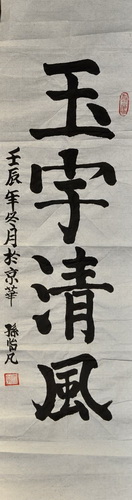 玉宇清風
壬辰年冬月於京華 孫